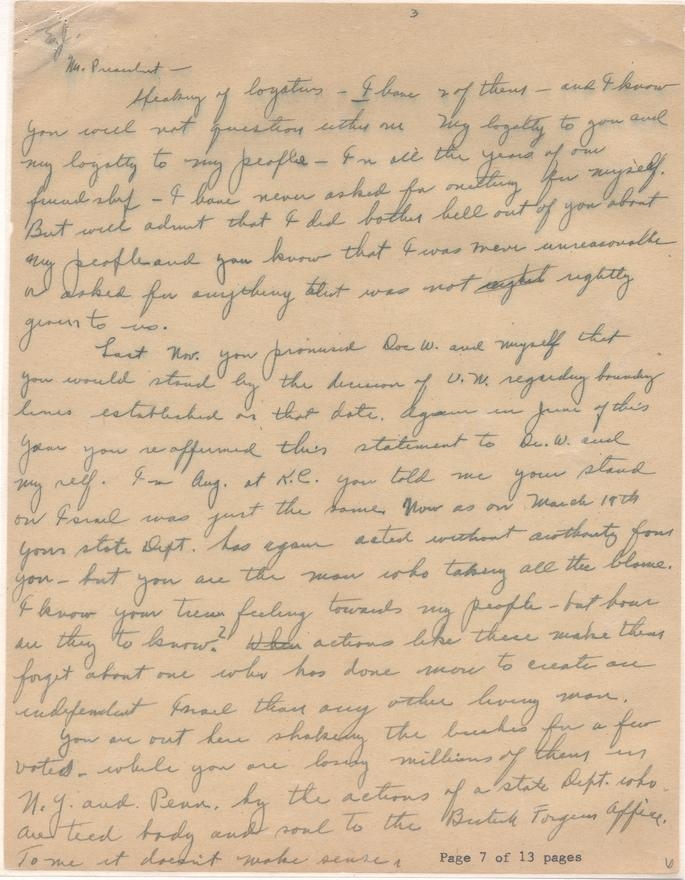 3
Mr. President —
Speaking of loyalties — I have 2 of them — and I know
you will not question either one My loyalty to you and
my loyalty to my people — In all the years of our
friendship — I have never asked for onething for myself.
But will admit that I did bother hell out of you about
my people and you know that I was never unreasonable
or asked for anything that was not rightly
given to us.
Last Nov. you promised Doc W. and myself that
you would stand by the decision of U.N. regarding boundry
lines established on that date. Again in June of this
year you reaffirmed this statement to Dr. W. and
my self. In Aug. at K.C. you told me your stand
on Israel was just the same. Now as on March 19th
your state Dept. has again acted without authority from
you — but you are the man who taking all the blame.
I know your true feeling towards my people — but how
are they to know? When actions like these make them
forget about one who has done more to create an
independent Israel than any other living man.
You are out here shaking the bushes for a few
votes — while you are losing millions of them in
N.Y. and Penn. by the actions of a state Dept. who
are tied body and soul to the British Foreign Office.
To me it doesn't make sense.
Page 7 of 13 pages
6